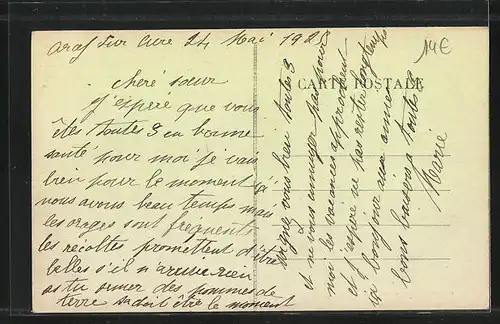 Arcy sur Cure 24 Mai 1925
14€
CARTE POSTALE
chère sœur
J'espere que vous
êtes toutes 3 en bonne
santé pour moi je vais
bien pour le moment ici
nous avons beau temps mais
les orages sont frequents
les récoltes promettent d'être
belles s'il n'arrive rien
as tu semer des pommes de
terre sa doit être le moment
soignez vous bien toutes 3
et ne vous ennuyer pas pour
moi les vacances approchent
et j'espère ne pas rester longtemps
bonjour aux amies
bons baisers a toutes 3
Marie